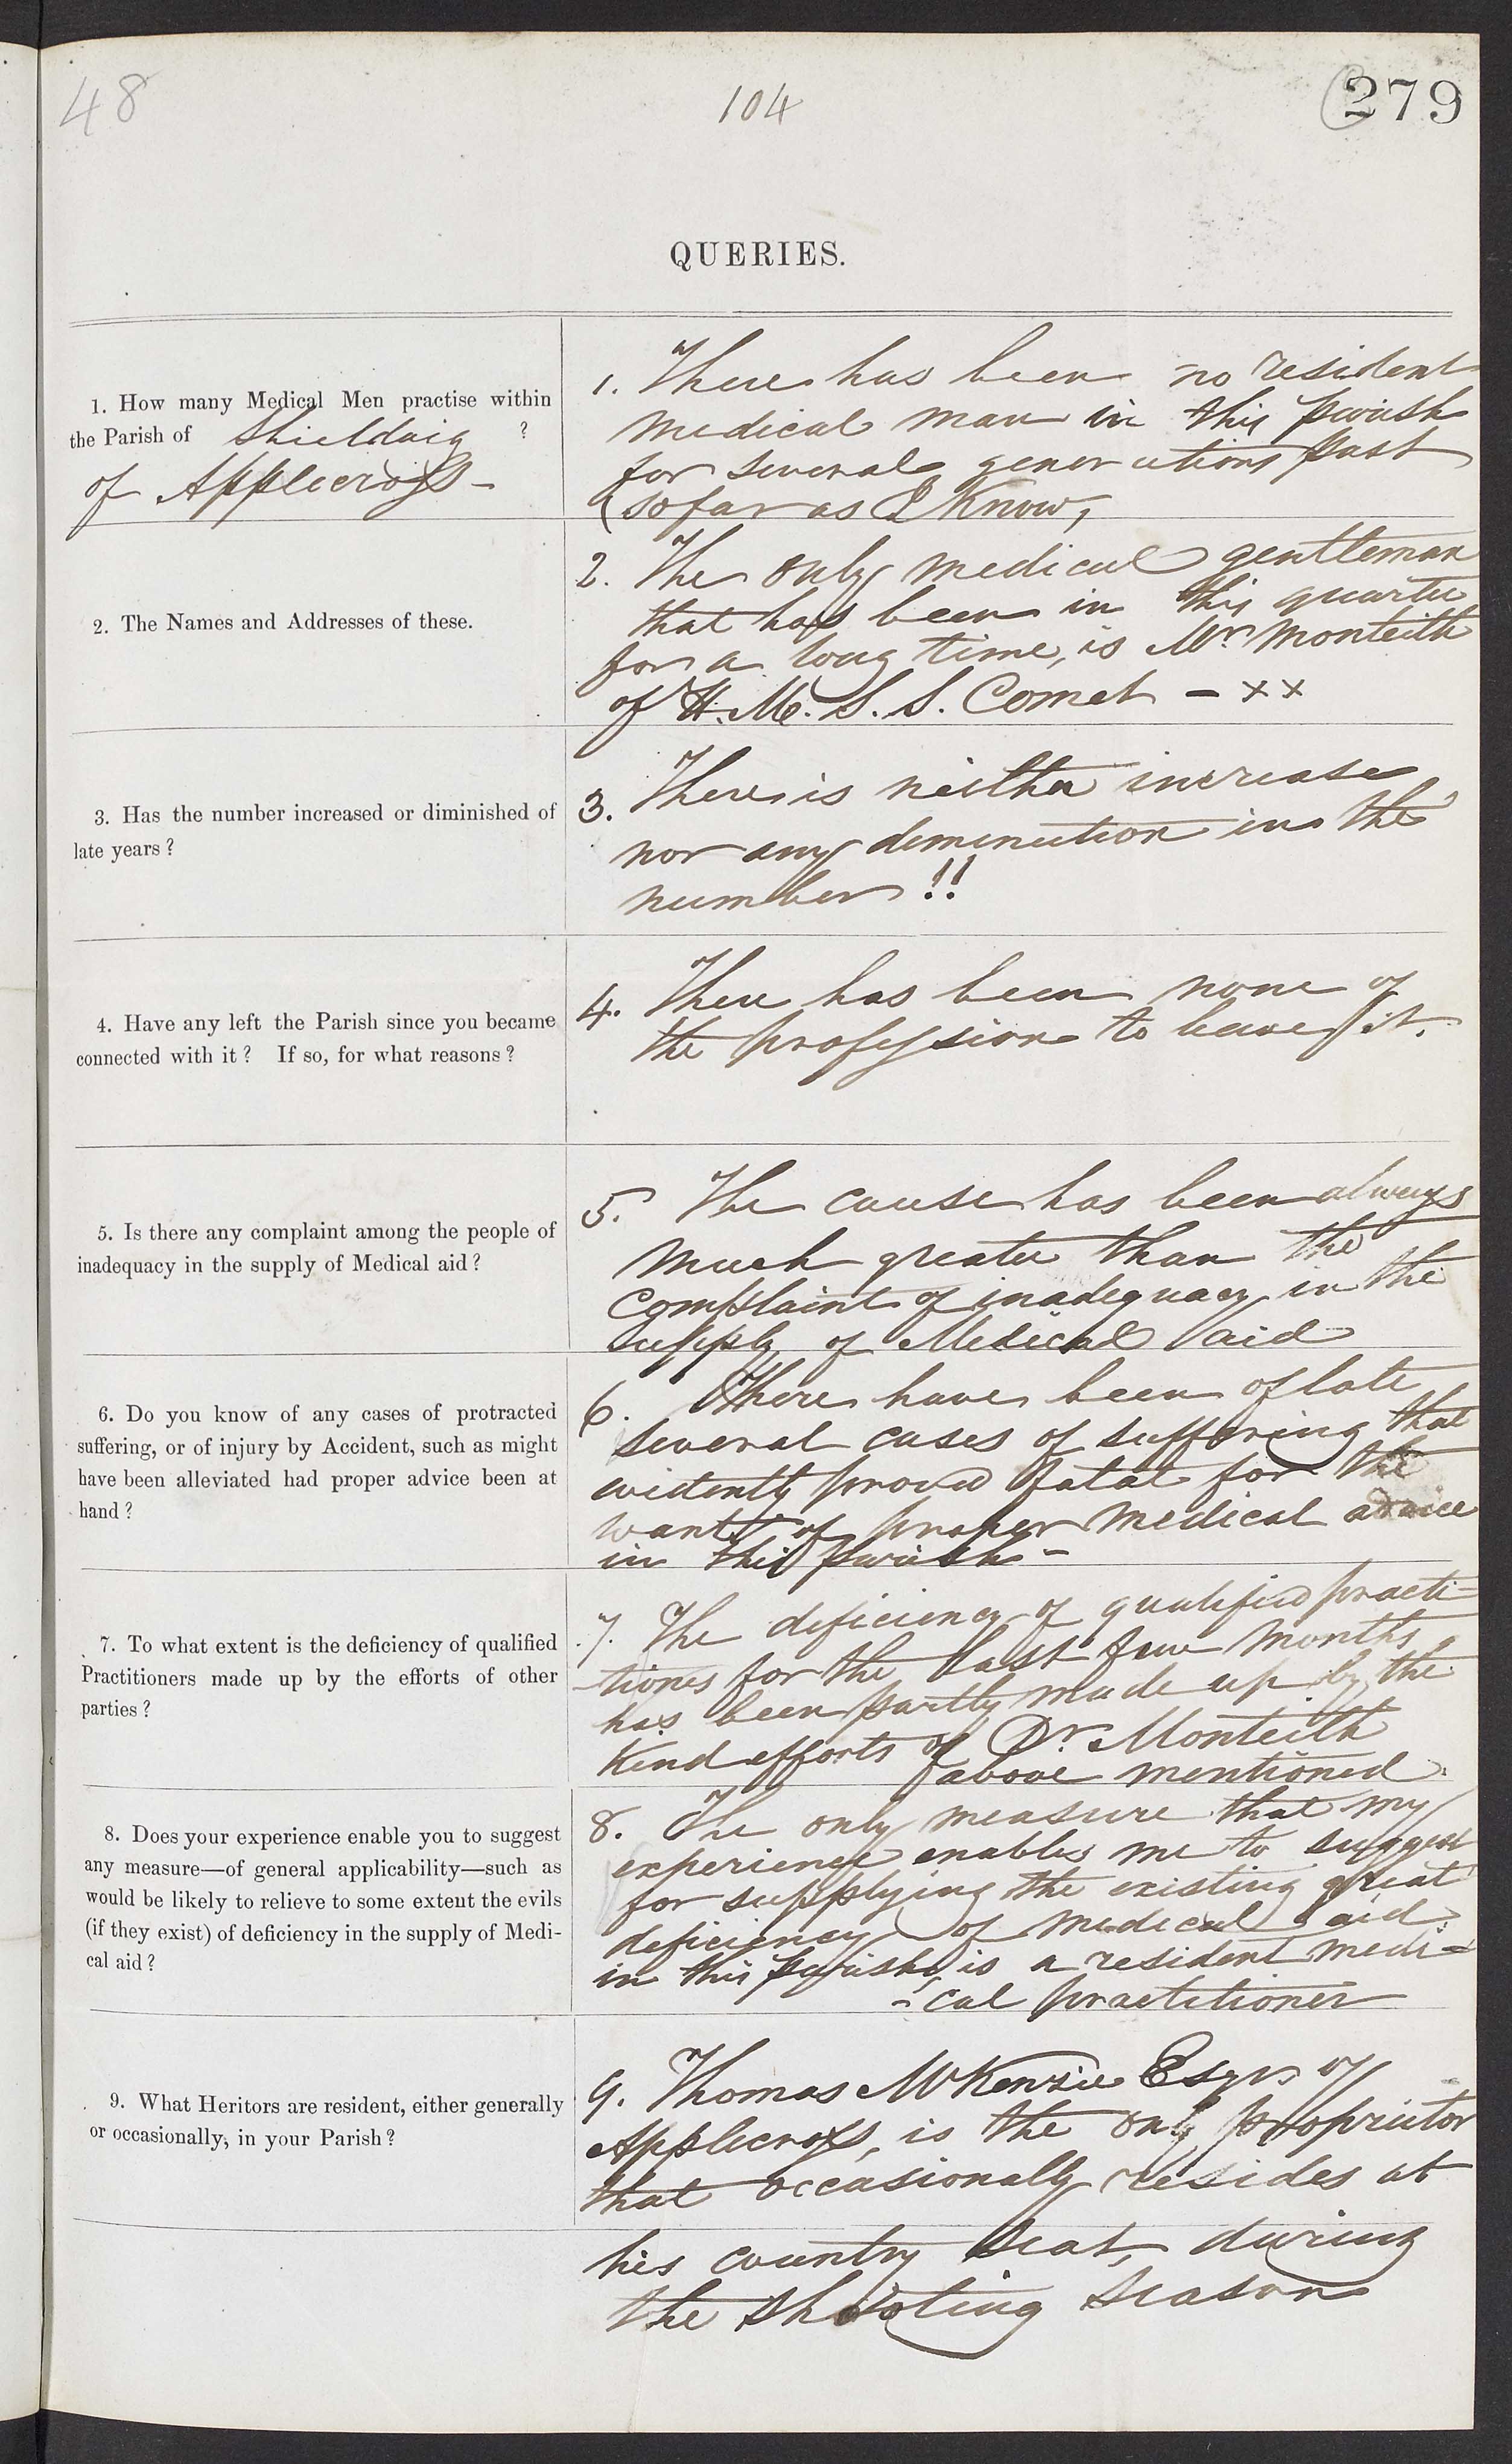 48
104
279
QUERIES.
1. How many Medical Men practise within
the Parish of Shieldaig ?
of Applecross -
1. There has been no resident
medical man in this parish
for several generations past
(so far as I Know,
2. The Names and Addresses of these.
2. The only medical gentleman
that has been in this quarter
for a long time, is Mr. Monteith
of H.M.S.S. Comet - xx
3. Has the number increased or diminished of
late years ?
3. There is neither increase
nor any diminution in the
number !!
4. Have any left the Parish since you became
connected with it ? If so, for what reasons ?
4. There has been none of
the profession to leave it.
5. Is there any complaint among the people of
inadequacy in the supply of Medical aid ?
5. The cause has been always
much greater than the
Complaint of inadequacy in the
supply of Medical aid
6. Do you know of any cases of protracted
suffering, or of injury by Accident, such as might
have been alleviated had proper advice been at
hand ?
6. There have been of late
several cases of suffering that
evidently proved fatal for the
want of proper medical advice
in this parish -
7. To what extent is the deficiency of qualified
Practitioners made up by the efforts of other
parties ?
7. The deficiency of qualified practi=
-tiones for the last few months
has been partly made up by the
Kind efforts of Dr. Monteith
above mentioned.
8. Does your experience enable you to suggest
any measure—of general applicability—such as
would be likely to relieve to some extent the evils
(if they exist) of deficiency in the supply of Medi-
cal aid ?
8. The only measure that my
experience enables me to suggest
for supplying the existing great
deficiency of medical aid
in this parish, is a resident medi=
-cal practitioner
9. What Heritors are resident, either generally
or occasionally, in your Parish ?
9. Thomas McKenzie Esqr. of
Applecross, is the only proprietor
that occasionally resides at
his country seat, during
the shooting season